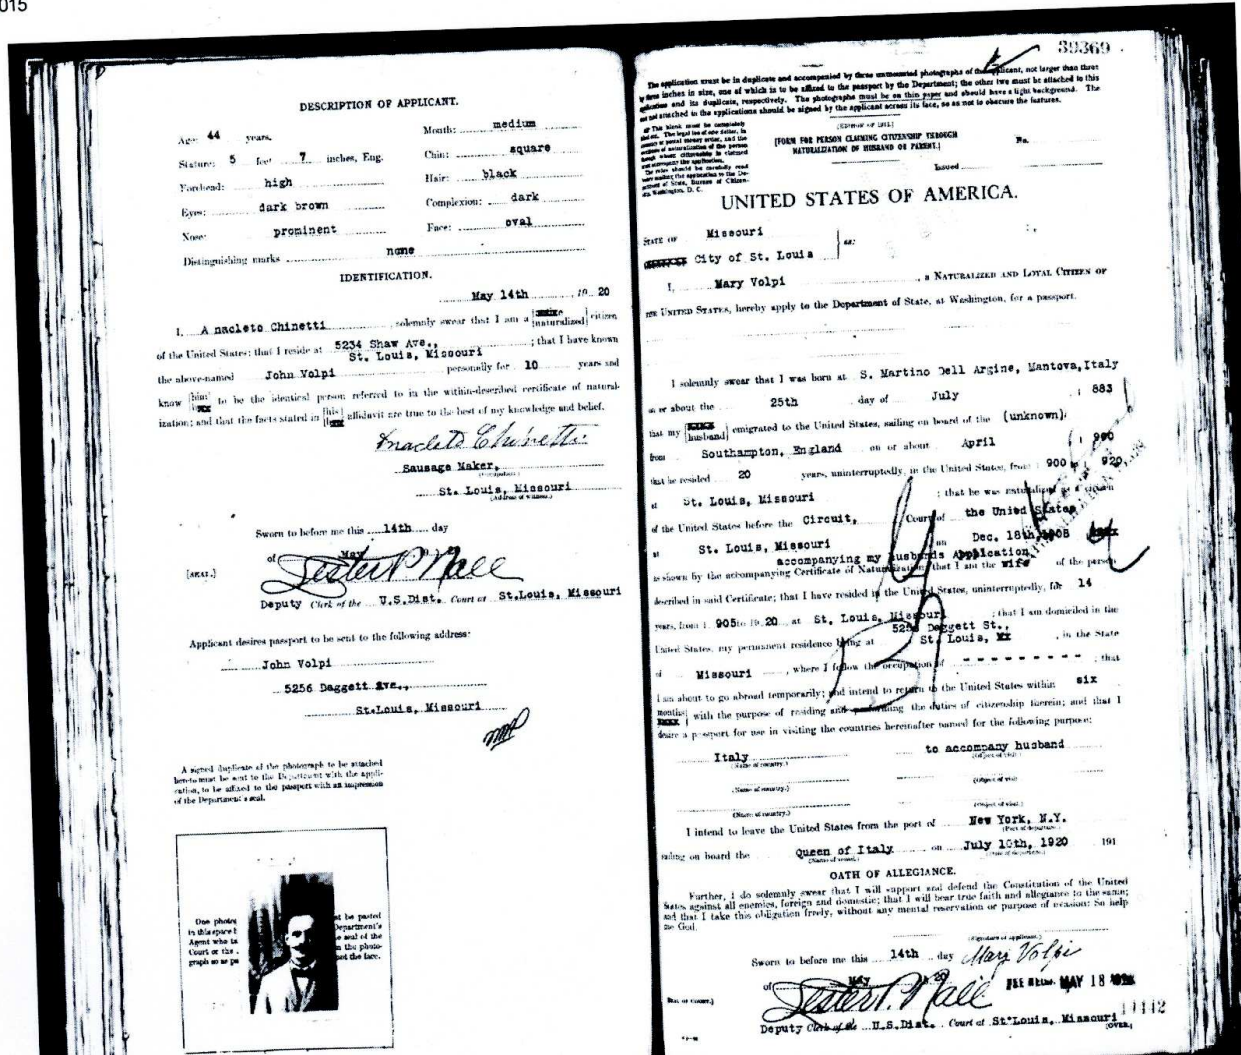 015
DESCRIPTION OF APPLICANT.
Age: 44 years.
Mouth: medium
Stature: 5 feet 7 inches, Eng.
Chin: square
Forehead: high
Hair: black
Eyes: dark brown
Complexion: dark
Nose: prominent
Face: oval
Distinguishing marks none
IDENTIFICATION.
May 14th , 19 20
I, A nacleto Chinetti , solemnly swear that I am a naturalized citizen
of the United States; that I reside at 5234 Shaw Ave., ; that I have known
St. Louis, Missouri
the above-named John Volpi personally for 10 years and
know him to be the identical person referred to in the within-described certificate of natural-
ization; and that the facts stated in his affidavit are true to the best of my knowledge and belief.
Anacleto Chinetti
Sausage Maker,
(Occupation.)
St. Louis, Missouri
(Address of witness.)
Sworn to before me this 14th day
of May 19 20
[SEAL.]
Lester P Nall
Deputy Clerk of the U.S.Dist. Court at St.Louis, Missouri
Applicant desires passport to be sent to the following address:
John Volpi
5256 Daggett Ave.,
St.Louis, Missouri
A signed duplicate of the photograph to be attached
hereto must be sent to the Department with the appli-
cation, to be affixed to the passport with an impression
of the Department's seal.
One photog st be pasted
in this space b Department's
Agent who ta e seal of the
Court or the n the photo-
graph so as not the face.
39369
The application must be in duplicate and accompanied by three unmounted photographs of the applicant, not larger than three
by three inches in size, one of which is to be affixed to the passport by the Department; the other two must be attached to this
application and its duplicate, respectively. The photographs must be on thin paper and should have a light background. The
not attached to the applications should be signed by the applicant across its face, so as not to obscure the features.
This blank must be completely
[FORM FOR PERSON CLAIMING CITIZENSHIP THROUGH
NATURALIZATION OF HUSBAND OR PARENT.]
No.
Issued
Washington, D. C.
UNITED STATES OF AMERICA.
STATE OF Missouri
City of St. Louis ss:
I, Mary Volpi , a NATURALIZED AND LOYAL CITIZEN OF
THE UNITED STATES, hereby apply to the Department of State, at Washington, for a passport.
I solemnly swear that I was born at S. Martino Dell Argine, Mantova,Italy
on or about the 25th day of July 1 883
that my husband emigrated to the United States, sailing on board of the (unknown),
from Southampton, England on or about April 1 900
that he resided 20 years, uninterruptedly, in the United States, from 1 900 to 920
at St. Louis, Missouri ; that he was naturalized as a citizen
of the United States before the Circuit, Court of the Unied States
at St. Louis, Missouri on Dec. 18th,1908
accompanying my husbands Application
as shown by the accompanying Certificate of Naturalization; that I am the wife of the person
described in said Certificate; that I have resided in the United States, uninterruptedly, for 14
years, from 1 905 to 19 20 at St. Louis, Missouri ; that I am domiciled in the
5256 Daggett St.,
United States, my permanent residence being at St. Louis, , in the State
of Missouri , where I follow the occupation of - - - - - - - - - ; that
I am about to go abroad temporarily; and intend to return to the United States within six
months with the purpose of residing and performing the duties of citizenship therein; and that I
desire a passport for use in visiting the countries hereinafter named for the following purpose:
Italy to accompany husband
(Name of country.) (Object of visit.)
(Name of country.) (Object of visit.)
(Name of country.) (Object of visit.)
I intend to leave the United States from the port of New York, N.Y.
(Port of departure.)
sailing on board the Queen of Italy on July 10th, 1920 191
(Name of vessel.) (Date of departure.)
OATH OF ALLEGIANCE.
Further, I do solemnly swear that I will support and defend the Constitution of the United
States against all enemies, foreign and domestic; that I will bear true faith and allegiance to the same;
and that I take this obligation freely, without any mental reservation or purpose of evasion: So help
me God.
(Signature of applicant.)
Sworn to before me this 14th day Mary Volpi
of May 20
MAY 18
Lester P. Nall
Deputy Clerk of the U.S.Dist. Court at St.Louis, Missouri
[OVER.]